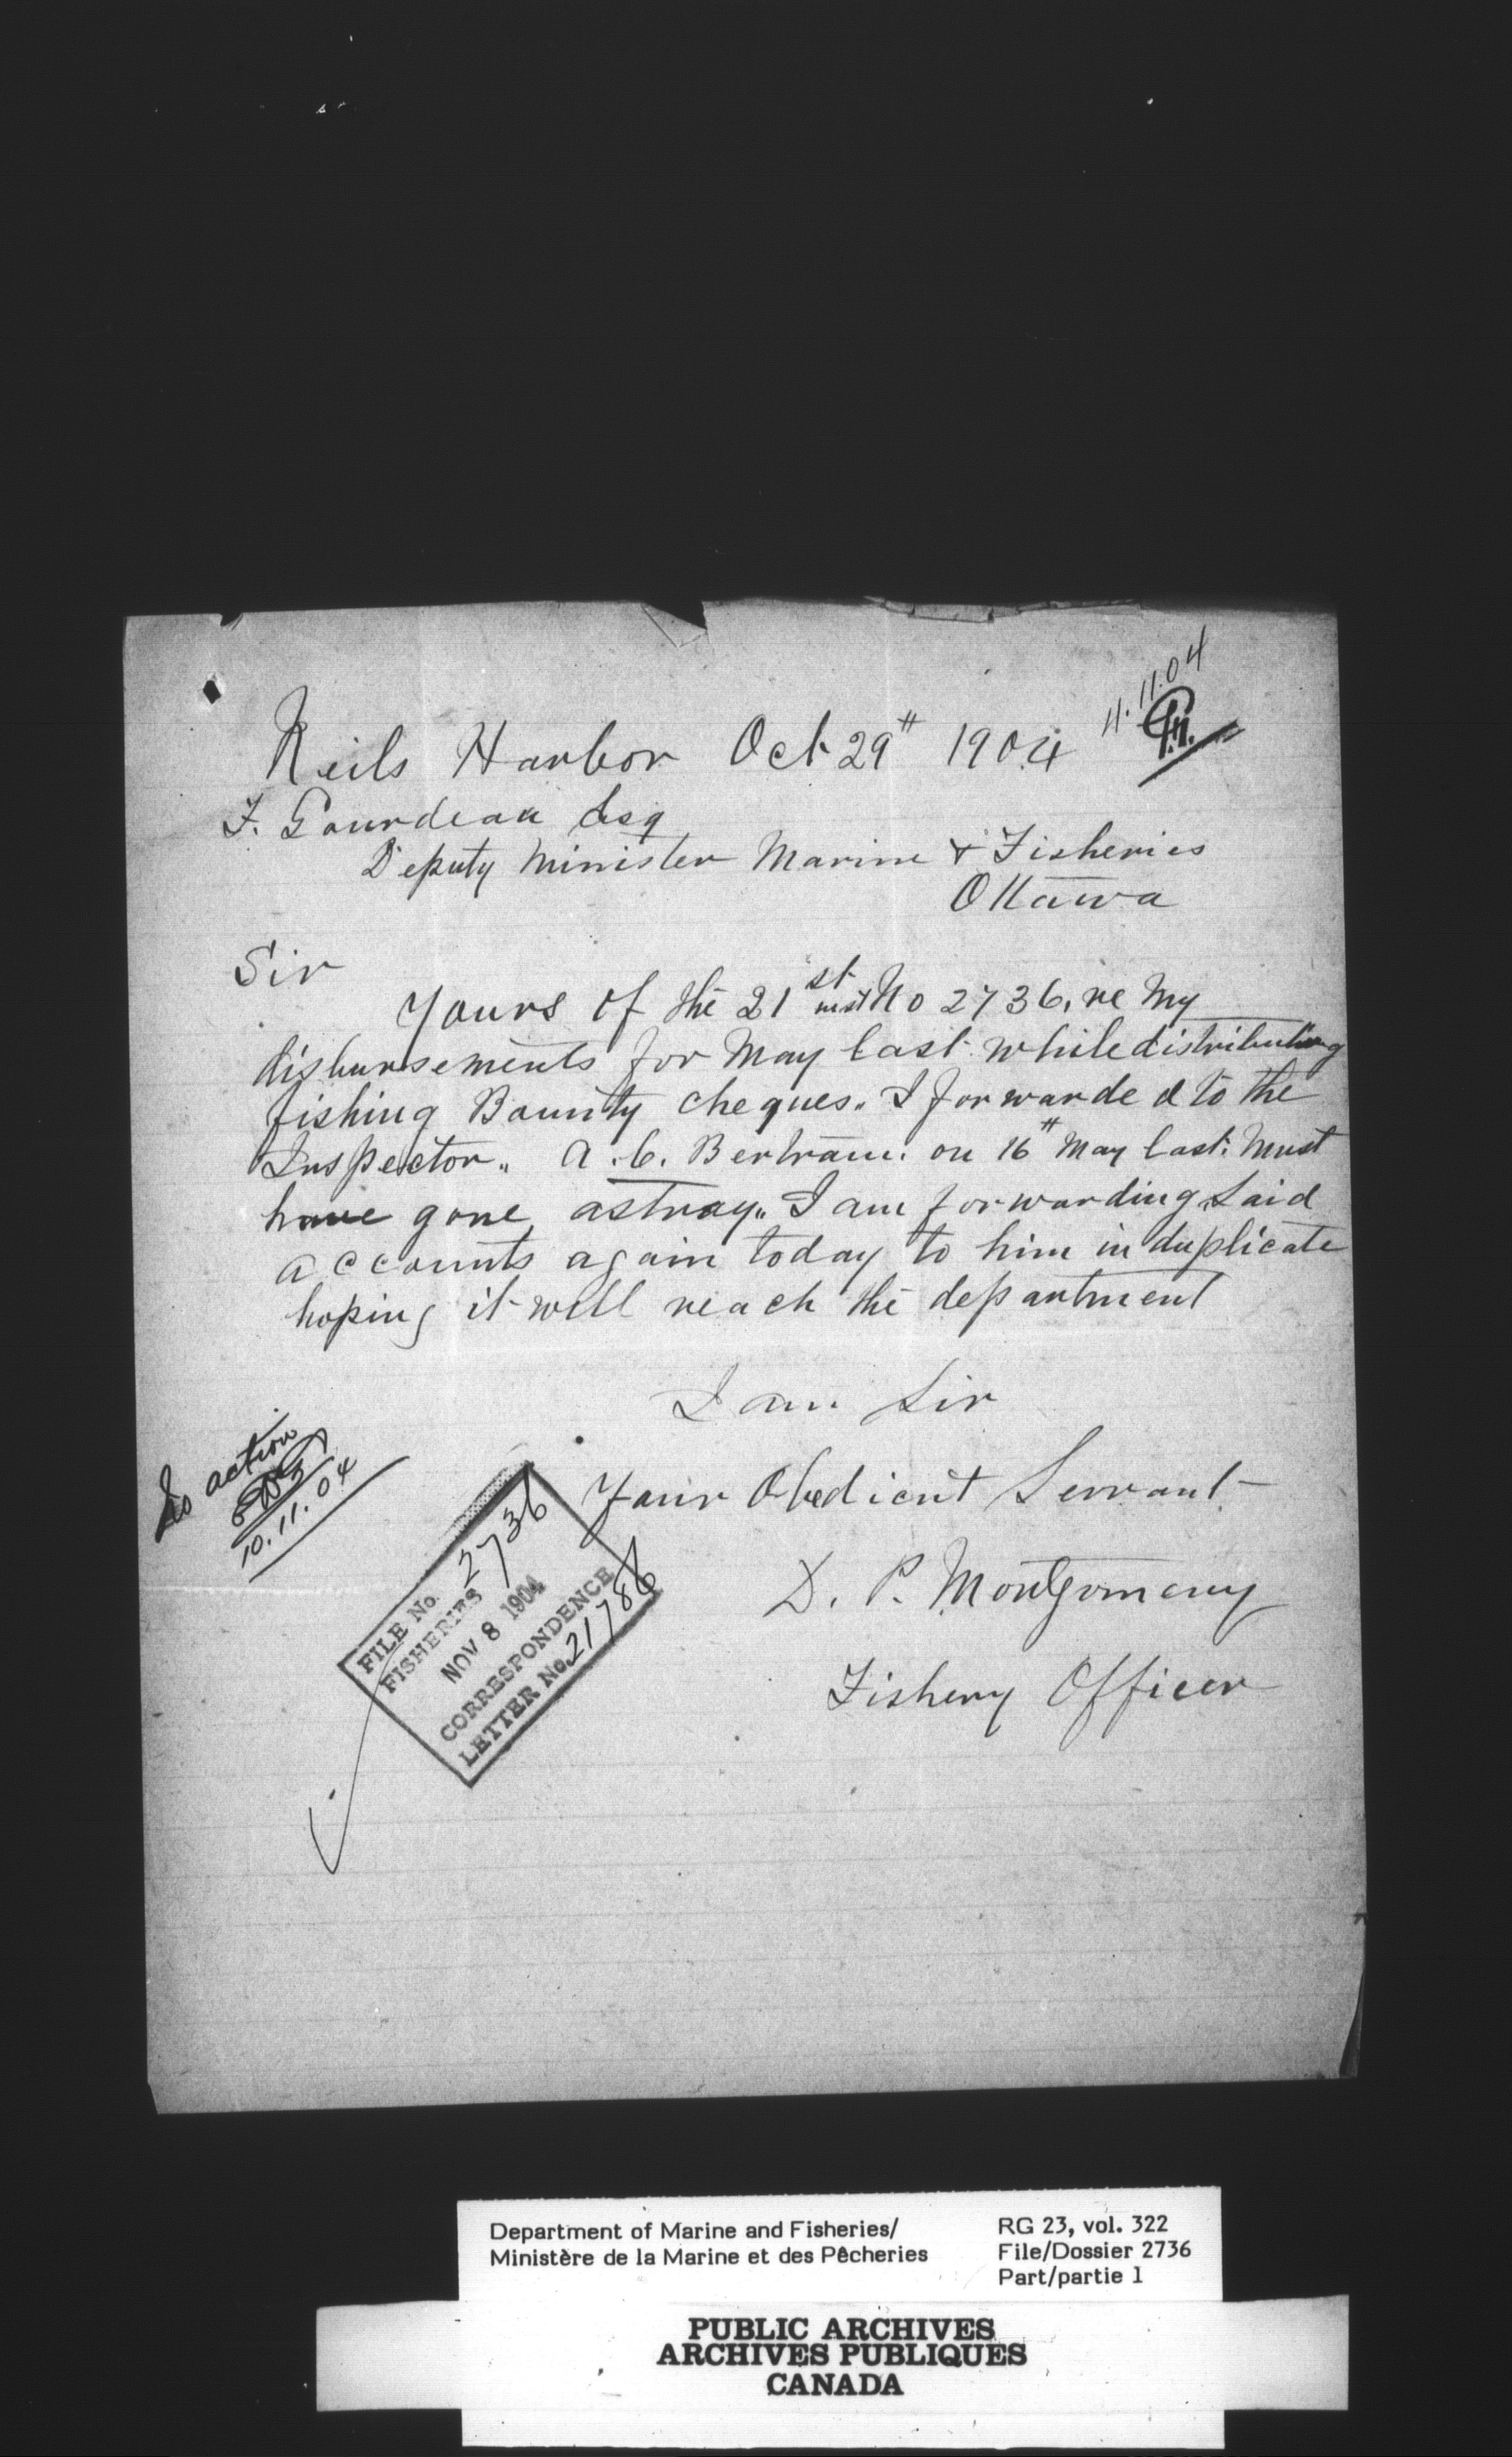 11.11.04
Neils Harbor Oct 29th 1904
F. Gourdeau Esq
Deputy Minister Marine & Fisheries
Ottawa
Sir
Yours of the 21st inst No 2736, re My
disbursements for May last while distributing
fishing Bounty cheques. I forwarded to the
Inspector. A. C. Bertram. on 16th May last. Must
have gone astray. I am forwarding said
accounts again today to him in duplicate
hoping it will reach the department
I am Sir
Your Obedient Servant
D. P. Montgomery
Fishery Officer
No action
10.11.04
FILE No. 2736
FISHERIES
NOV 8 1904
CORRESPONDENCE
LETTER No. 21786
Department of Marine and Fisheries/
Ministère de la Marine et des Pêcheries
RG 23, vol. 322
File/Dossier 2736
Part/partie 1
PUBLIC ARCHIVES
ARCHIVES PUBLIQUES
CANADA